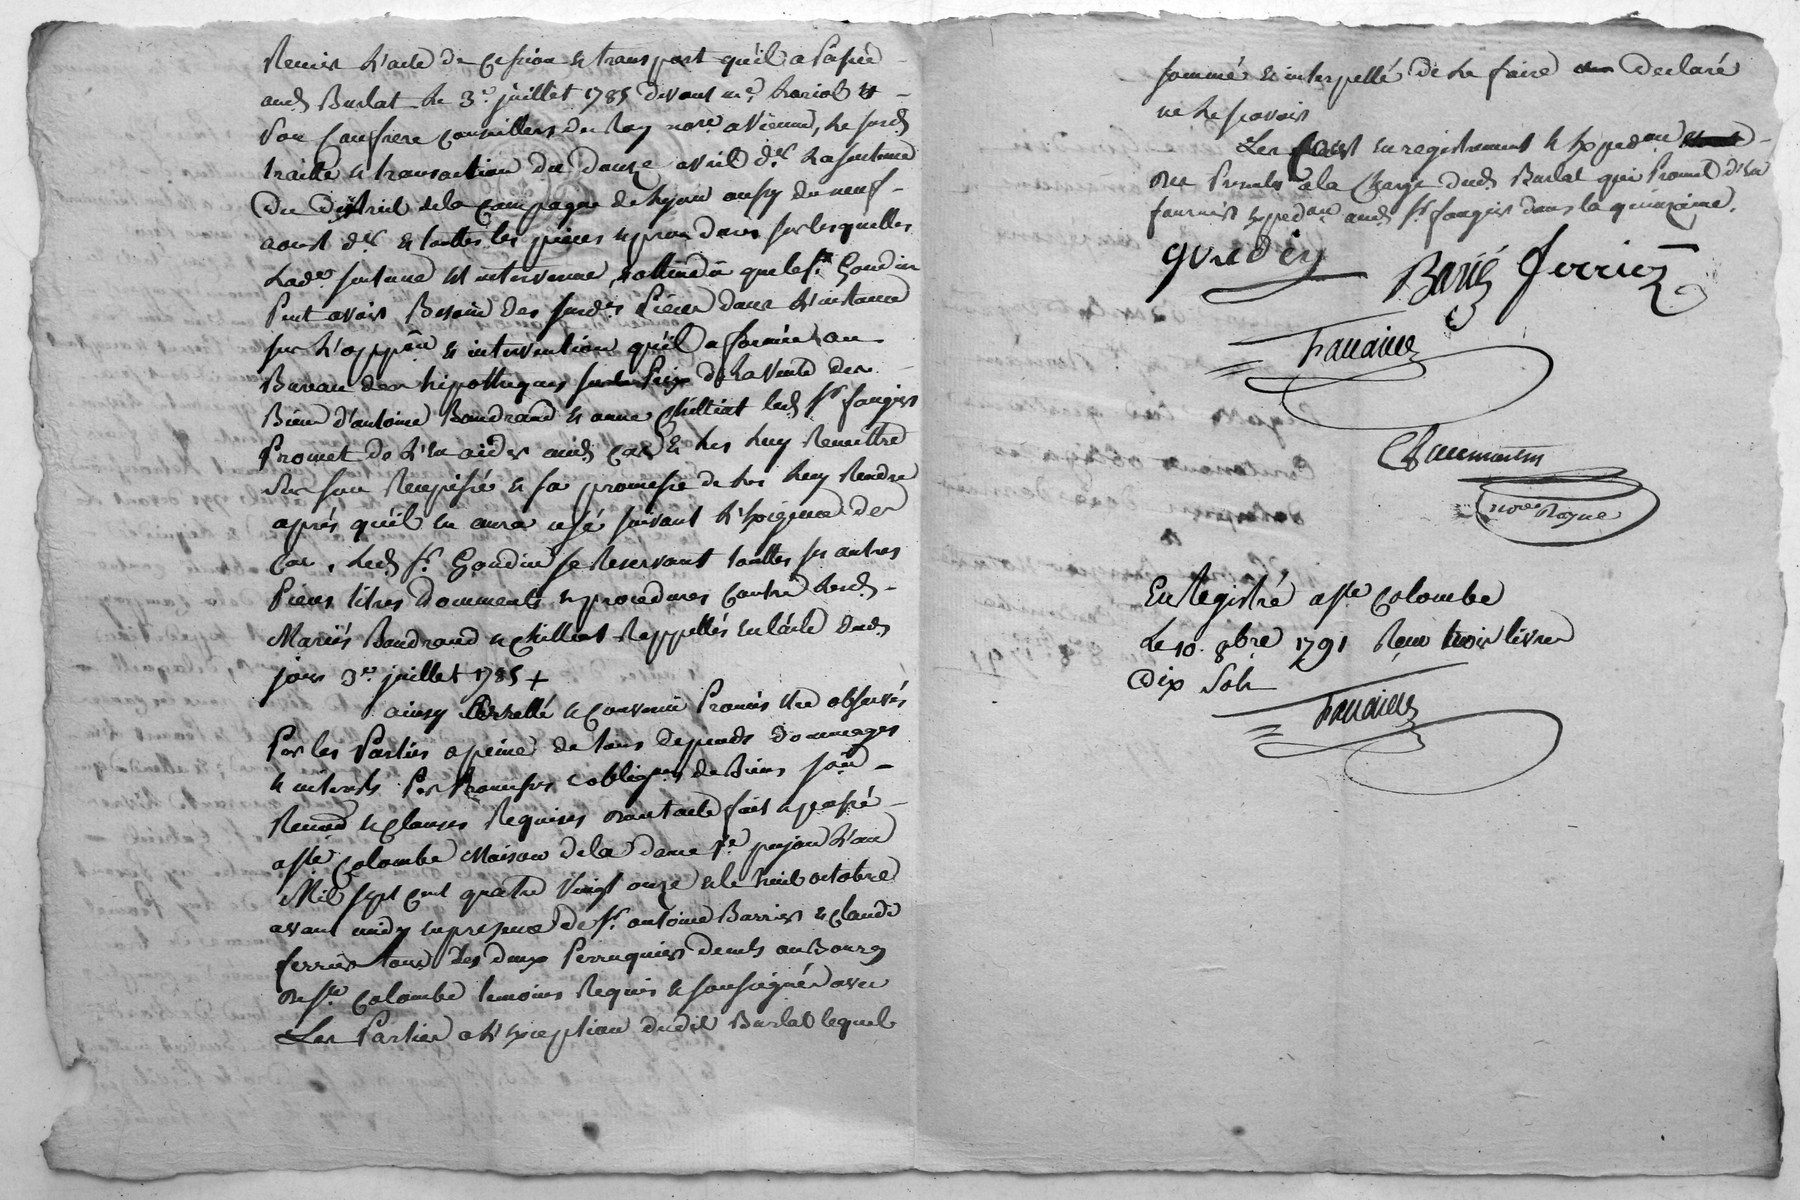 Remis l'acte de cession & transport qu'il a passée
aud. Burlat le 3e. juillet 1785 devant me. &
son confrere conseillers du Roy nore. a Vienne, le susd.
traitté & transaction du douze avril der. la sentence
du district de la campagne de Lyon aussy du neuf
aoust der. & touttes les pieces & procedures sur lesquelles
lade. sentence est intervenue, & attendu que le sr. Goudin
peut avoir Besoin des susd. pieces dans l'instance
sur l'oppon. & intervention qu'il a formée au
Bureau des hipotheques sur le prix de la vente des
Biens d'antoine Baudrand & anne Chilliat led. sr. faugier
promet de l'en aider aud. cas & les luy Remettre
sur son Recepissé & sa promesse de les luy Rendre
aprés qu'il en aura usé suivant l'exigence du
cas, led. sr. Goudin se Reservant touttes ses autres
pieces titres documents & procedures contre lesd.
Mariés Baudrand & Chilliat Rappellés en l'acte dud.
jour 3e. juillet 1785 +
ainsy & convenu promis etre observés
par les parties a peine de tous depends dommages
& interets par promesses obligons. de Biens
Renons. & clauses Requises dont acte fait & passé
a ste. Colombe Maison de la dame ve. pujon l'an
Mil sept cent quatre vingt onze & le huit octobre
avant midy en presence de sr. antoine Barrier & claude
ferrier tous les deux perruquiers demts. au Bourg
de ste. Colombe temoins Requis & soussignés avec
Les Parties a l'exception dudit Burlat lequel
sommé & interpellé de le faire declaré
ne le scavoir
Les enregistrement & expedon.
des presentes a la charge dud. Burlat qui promet d'en
fournir expedon. aud. sr. faugier dans la quinzaine.
gourdin Barié ferrier
Faraine
Chaumartin
nore. Royal
Enregistré a ste. Colombe
Le 10. 8bre 1791 Reçu trois livres
Dix Sols
Faraine